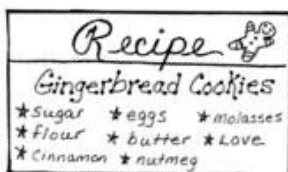 Recipe
Gingerbread Cookies
* Sugar * eggs * molasses
* flour * butter * Love
* Cinnamon * nutmeg